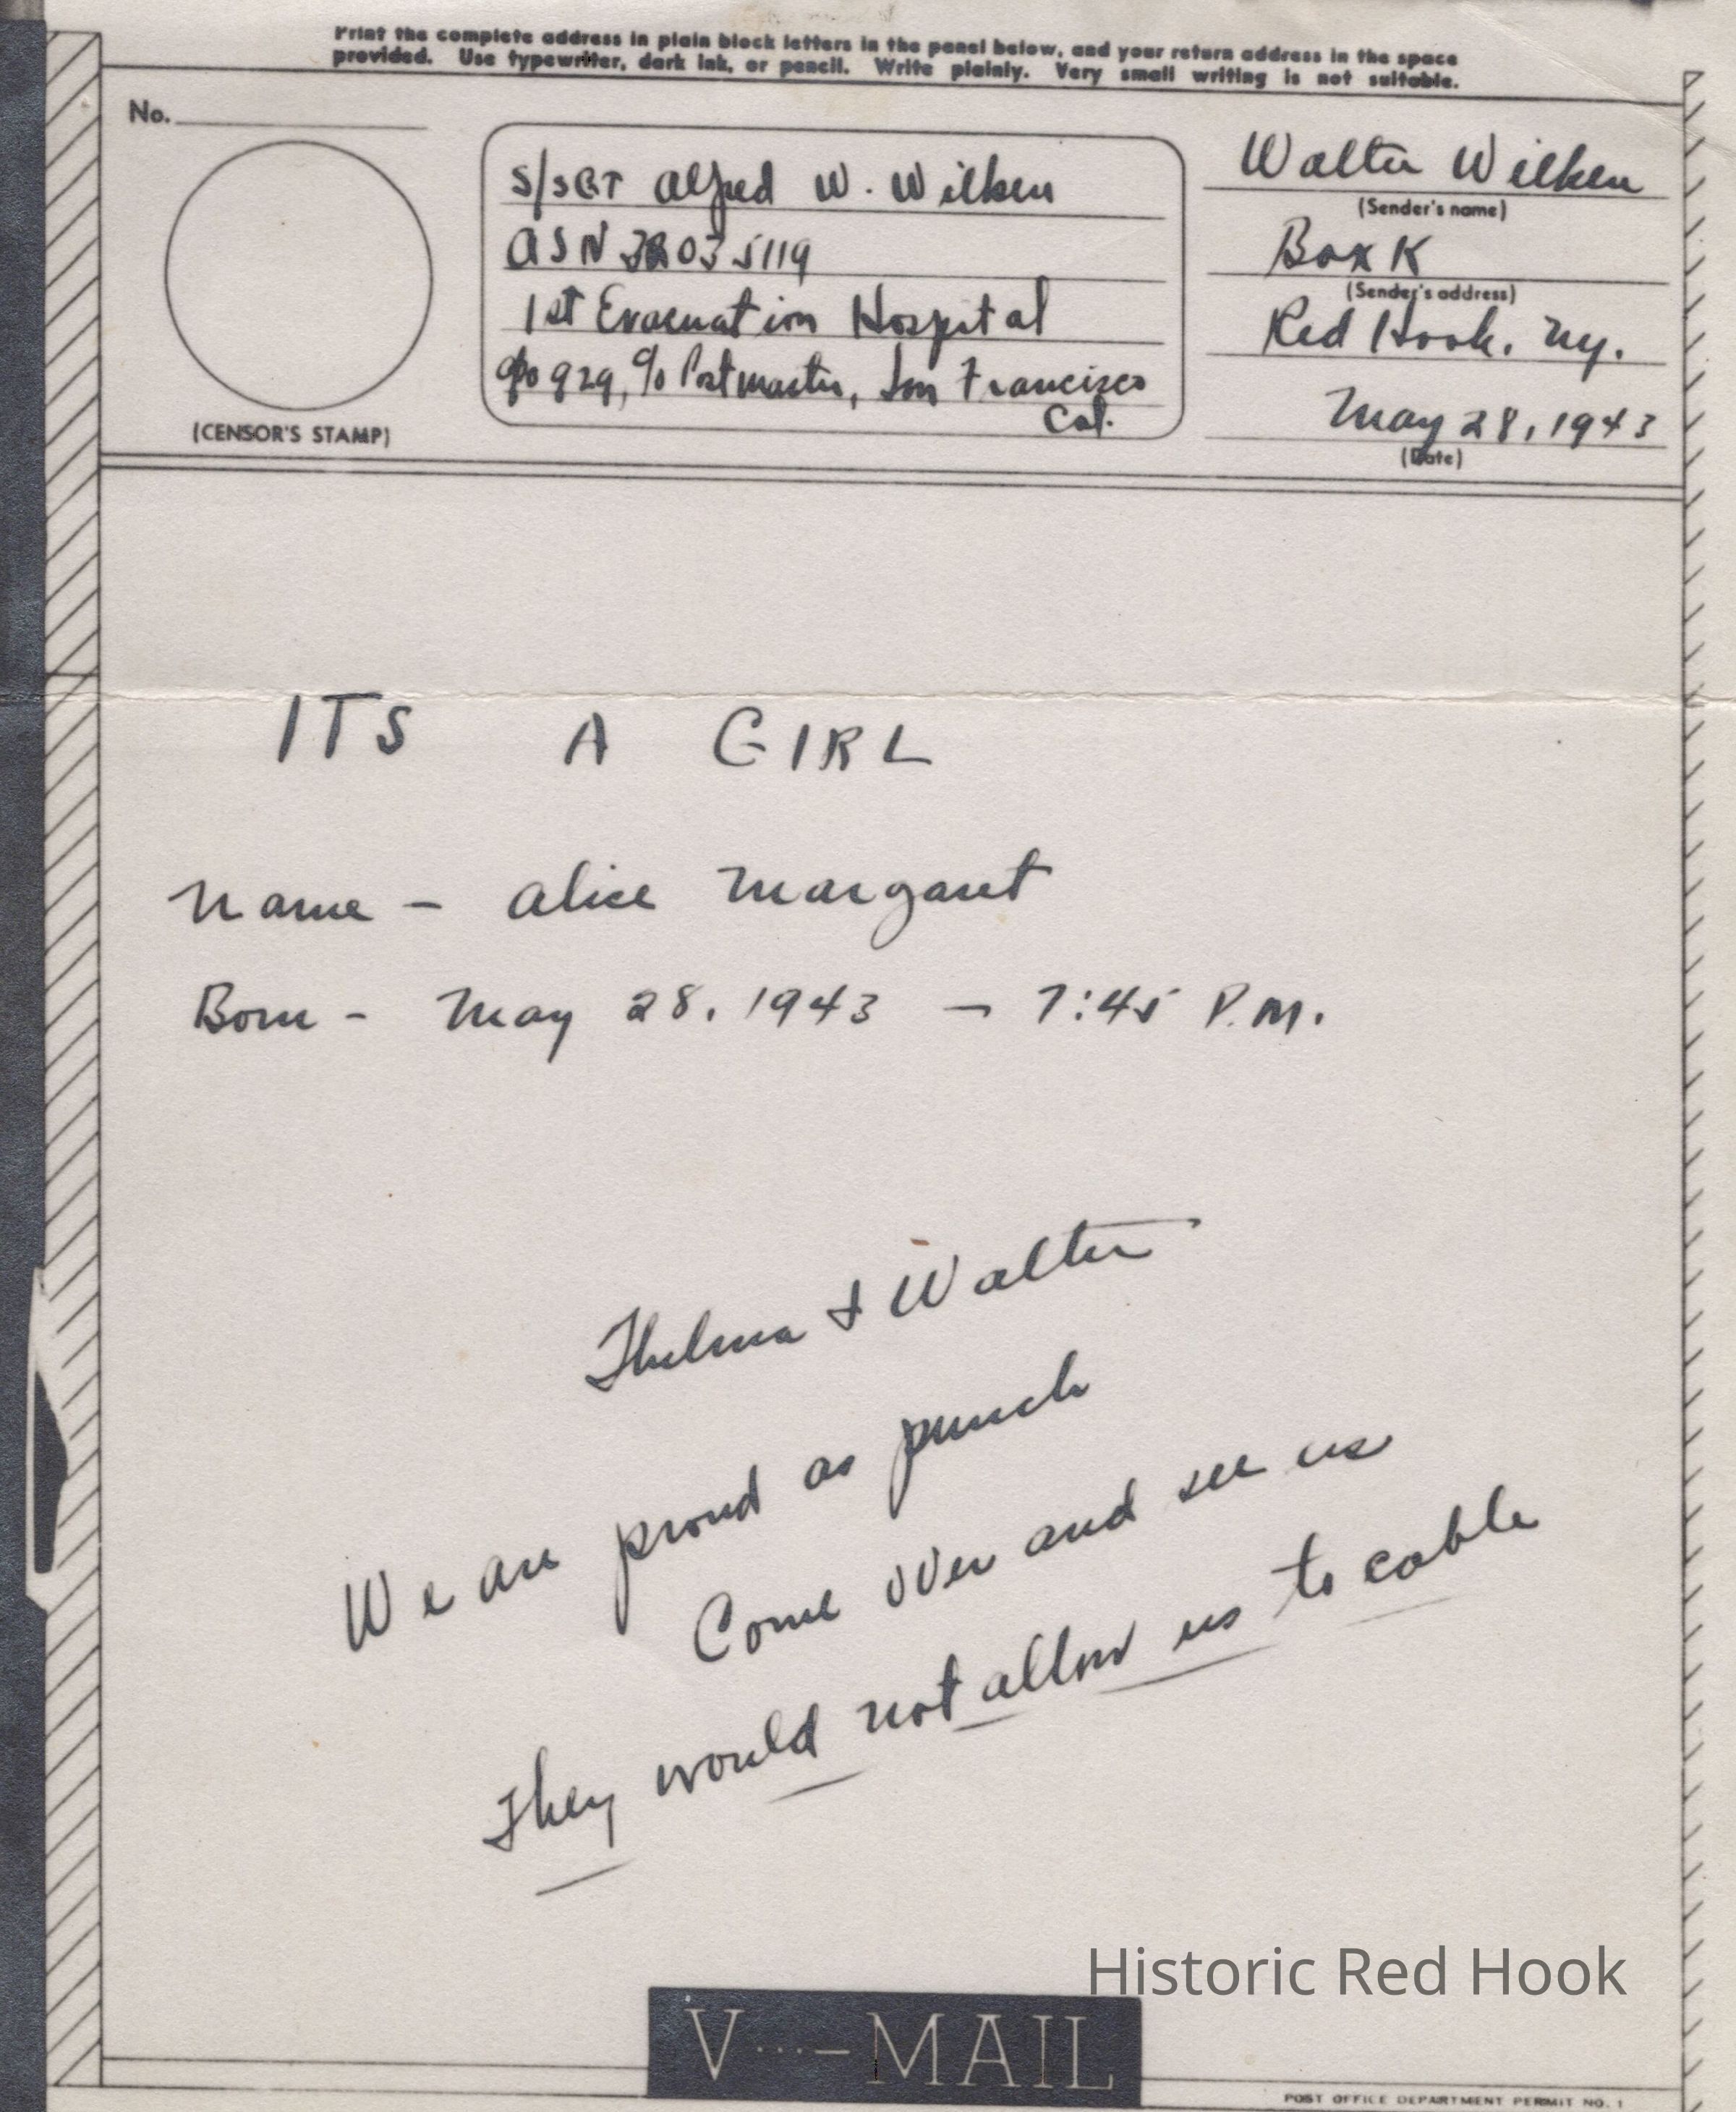 Print the complete address in plain block letters in the panel below, and your return address in the space
provided. Use typewriter, dark ink, or pencil. Write plainly. Very small writing is not suitable.
No.
(CENSOR'S STAMP)
S/SGT Alfred W. Wilken
ASN 32035119
1st Evacuation Hospital
APO 929, c/o Postmaster, San Francisco
Cal.
Walter Wilken
(Sender's name)
Box K
(Sender's address)
Red Hook, Ny.
May 28, 1943
(Date)
ITS A GIRL
Name - Alice Margaret
Born - May 28, 1943 - 7:45 P.M.
Thelma & Walter
We are proud as punch
Come over and see us
They would not allow us to cable
Historic Red Hook
V···-MAIL
POST OFFICE DEPARTMENT PERMIT NO. 1